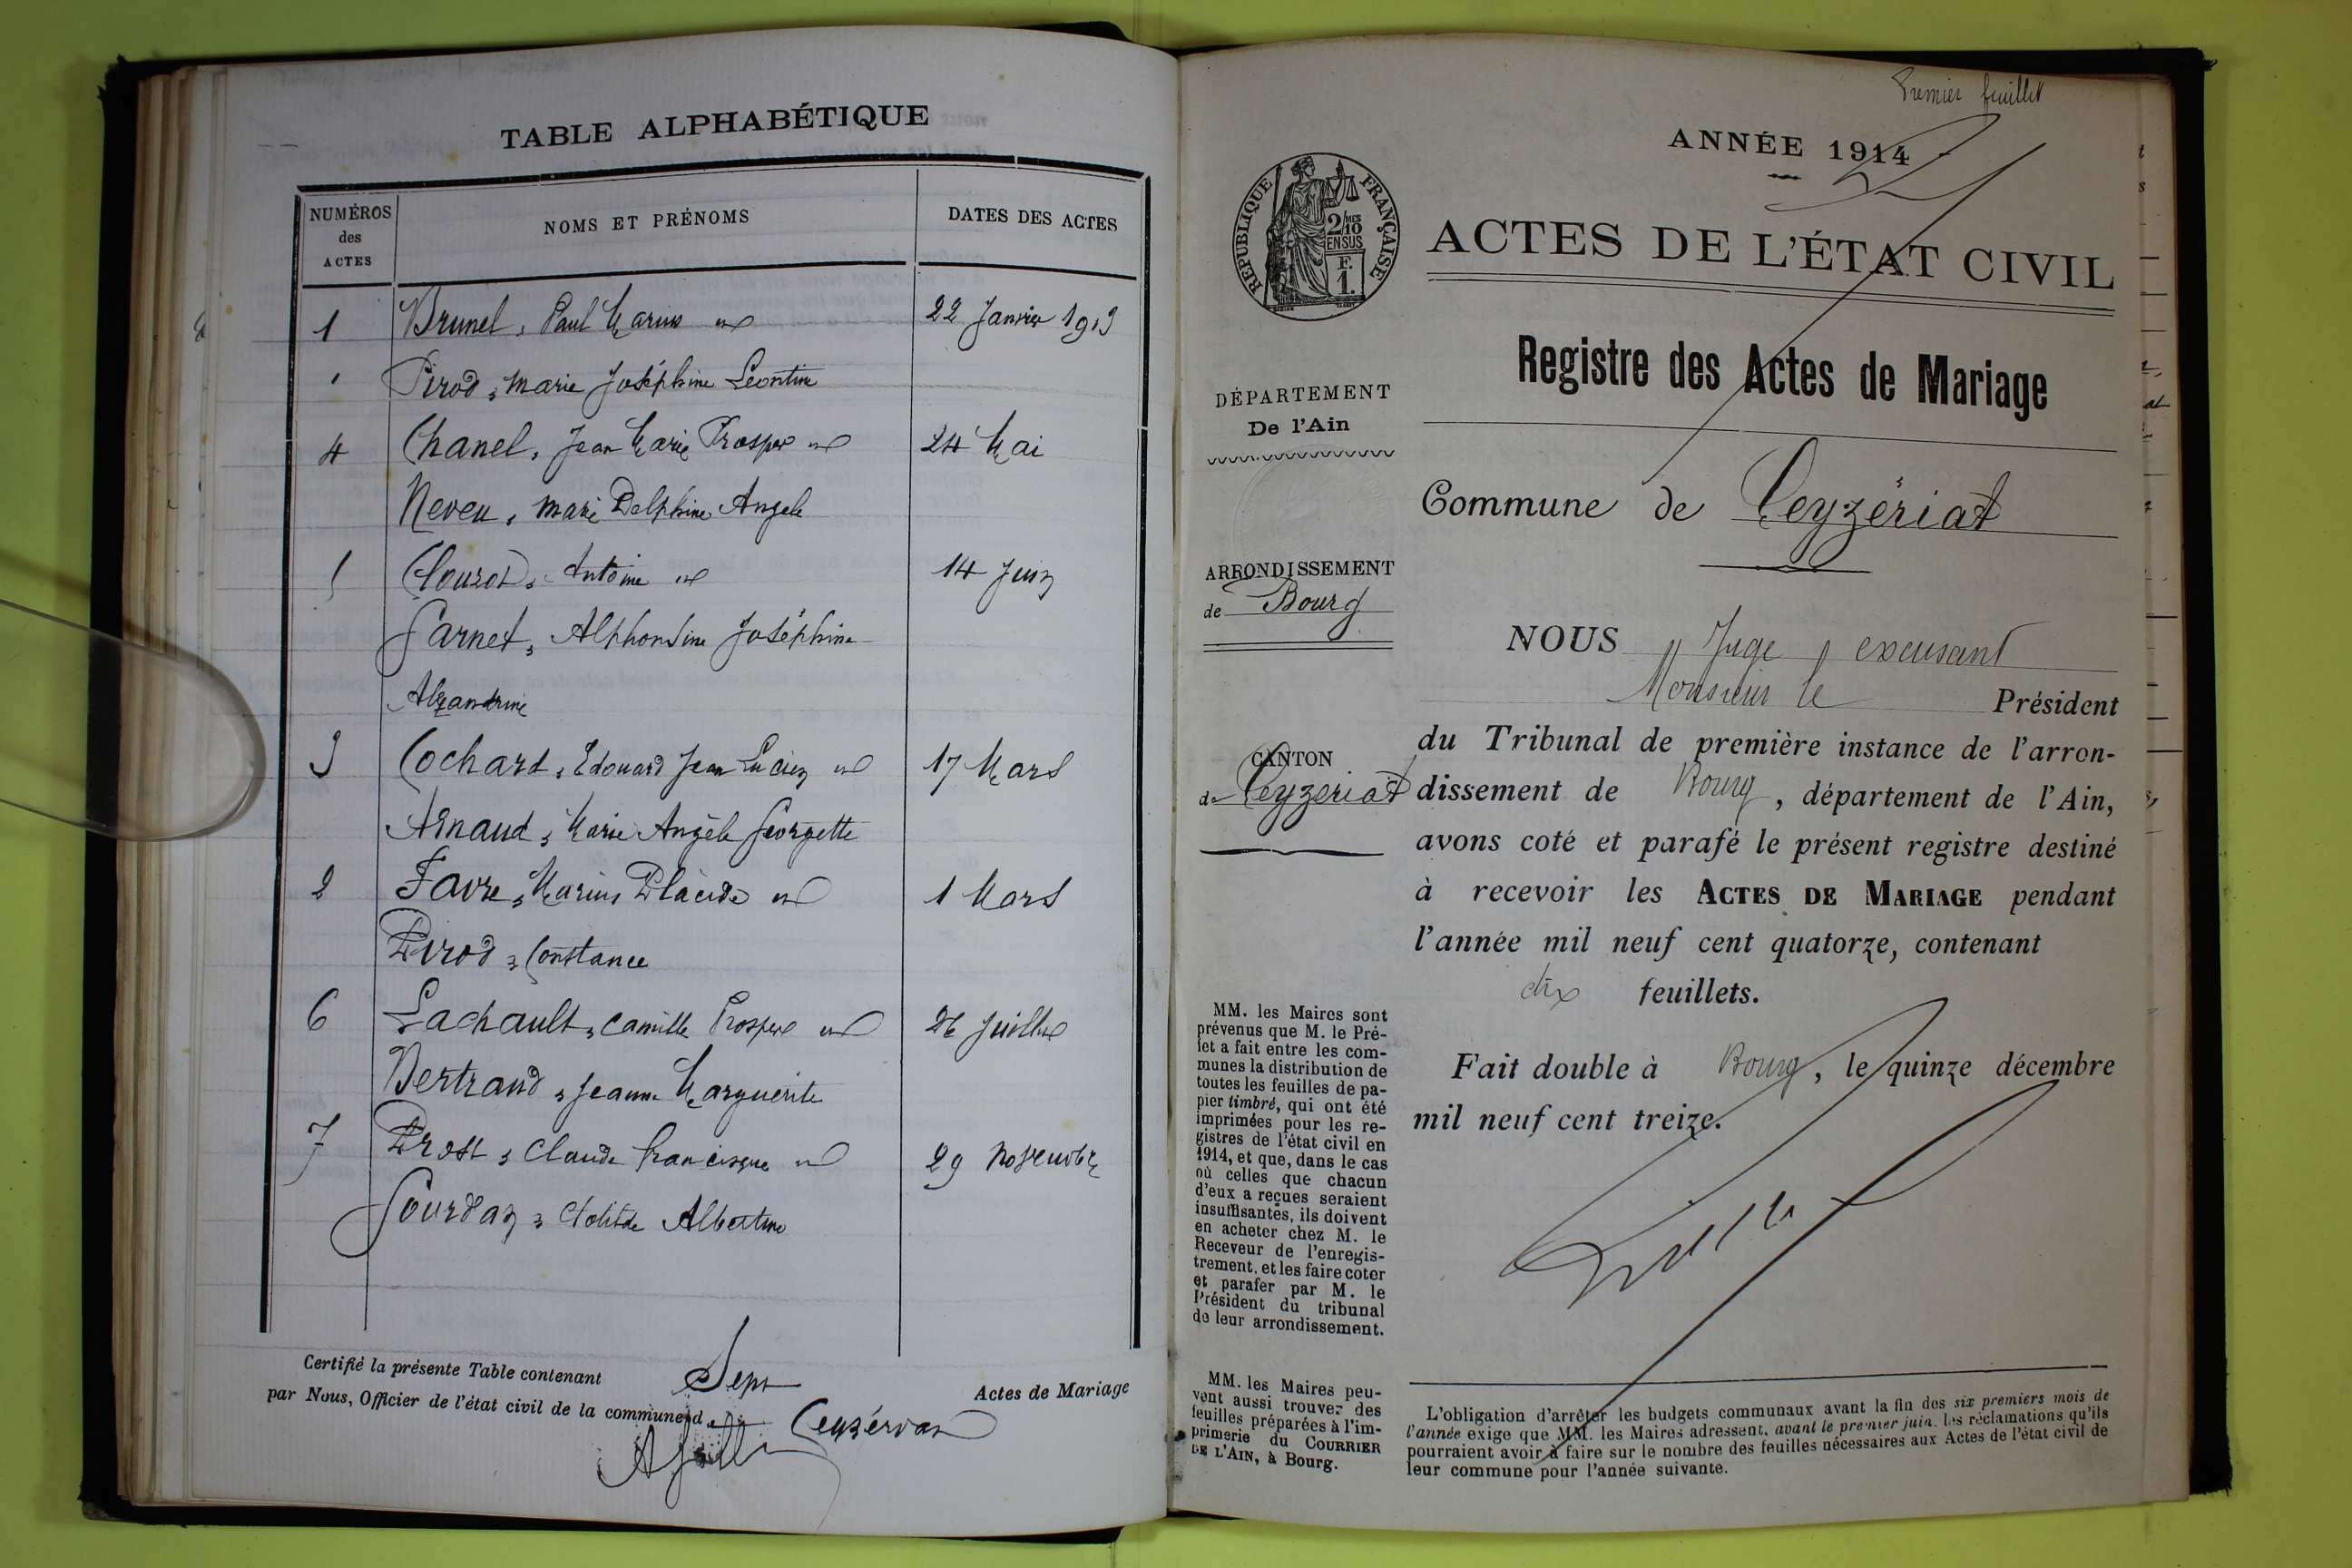 TABLE ALPHABÉTIQUE
NUMÉROS
des
ACTES
NOMS ET PRÉNOMS
DATES DES ACTES
1 Brunel, Paul Marius 22 Janvier 1913
Pirod, Marie Joséphine Léontine
4 Chanel, Jean Marie Prosper 24 Mai
Neveu, Marie Delphine Angèle
5 Clouzot, Antoine 14 Juin
Garnet, Alphonsine Joséphine
Alexandrine
3 Cochard, Edouard Jean Lucien 17 Mars
Arnaud, Marie Angèle Georgette
2 Favre, Marius Placide 1 Mars
Pirod, Constance
6 Lachault, Camille Prosper 26 Juillet
Bertrand, Jeanne Marguerite
7 Prost, Claude Francisque 29 Novembre
Gourdan, Clotilde Albertine
Certifié la présente Table contenant Sept Actes de Mariage
par Nous, Officier de l'état civil de la commune d Ceyzériat
Premier feuillet
ANNÉE 1914
RÉPUBLIQUE FRANÇAISE
2/10 MES
EN SUS
F.
1.
ACTES DE L'ÉTAT CIVIL
Registre des Actes de Mariage
DÉPARTEMENT
De l'Ain
Commune de Ceyzériat
ARRONDISSEMENT
de Bourg
CANTON
de Ceyzeriat
NOUS Juge excusant
Monsieur le Président
du Tribunal de première instance de l'arron-
dissement de Bourg, département de l'Ain,
avons coté et parafé le présent registre destiné
à recevoir les ACTES DE MARIAGE pendant
l'année mil neuf cent quatorze, contenant
dix feuillets.
Fait double à Bourg, le quinze décembre
mil neuf cent treize.
MM. les Maires sont
prévenus que M. le Pré-
fet a fait entre les com-
munes la distribution de
toutes les feuilles de pa-
pier timbré, qui ont été
imprimées pour les re-
gistres de l'état civil en
1914, et que, dans le cas
où celles que chacun
d'eux a reçues seraient
insuffisantes, ils doivent
en acheter chez M. le
Receveur de l'enregis-
trement, et les faire coter
et parafer par M. le
Président du tribunal
de leur arrondissement.
MM. les Maires peu-
vent aussi trouver des
feuilles préparées à l'im-
primerie du COURRIER
DE L'AIN, à Bourg.
L'obligation d'arrêter les budgets communaux avant la fin des six premiers mois de
l'année exige que MM. les Maires adressent, avant le premier juin, les réclamations qu'ils
pourraient avoir à faire sur le nombre des feuilles nécessaires aux Actes de l'état civil de
leur commune pour l'année suivante.